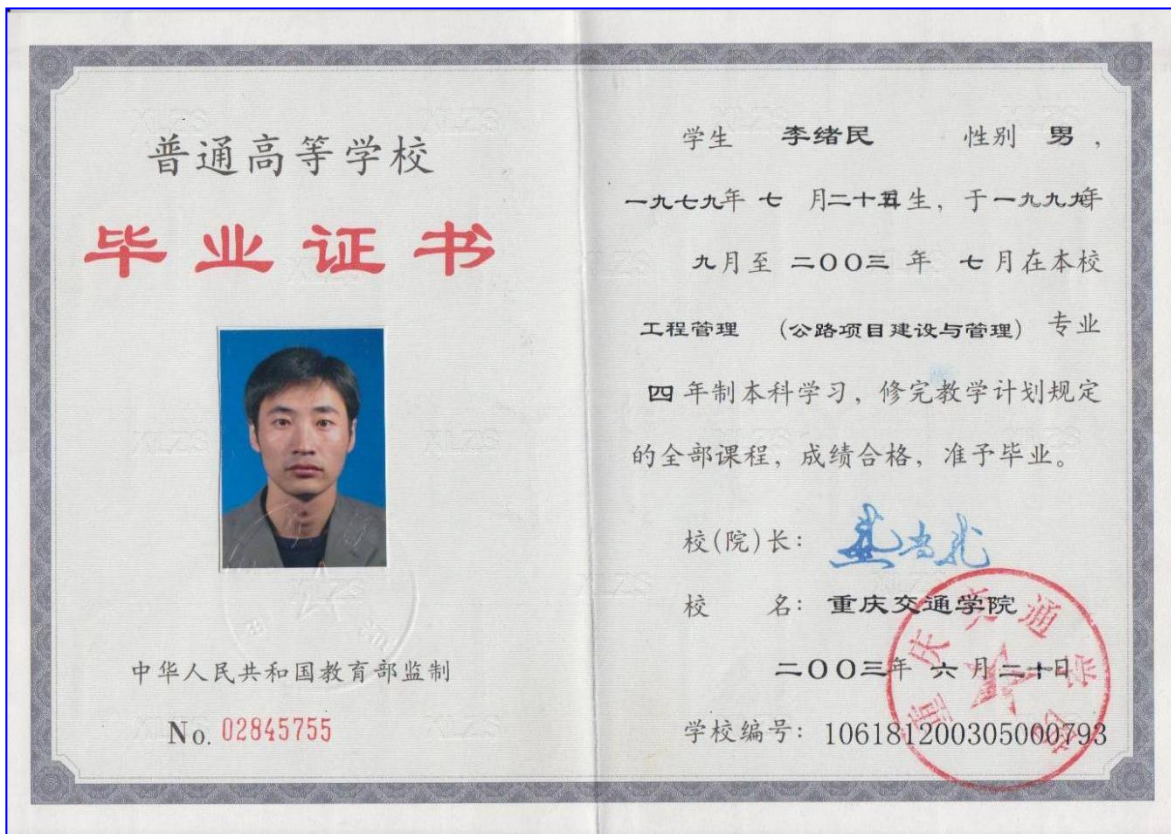 普通高等学校
毕业证书
中华人民共和国教育部监制
No. 02845755
学生 李绪民 性别 男，
一九七九年 七 月二十五日生，于一九九九年
九月至 二〇〇三 年 七月在本校
工程管理 （公路项目建设与管理）专业
四 年制本科学习，修完教学计划规定
的全部课程，成绩合格，准予毕业。
校(院)长：
校 名：重庆交通学院
二〇〇三年 六 月二十日
学校编号：106181200305000793
重庆交通学院
XLZS